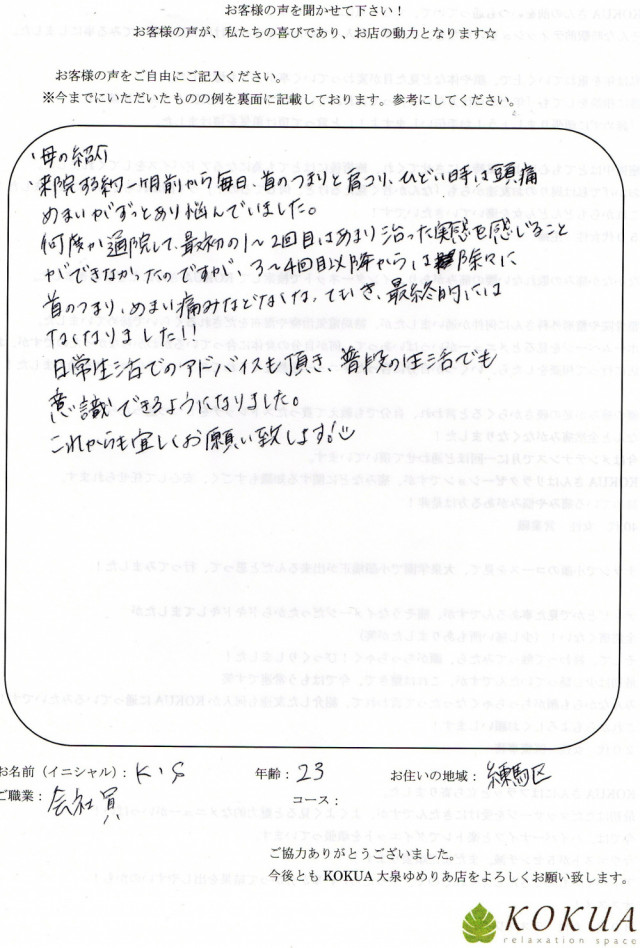 お客様の声を聞かせて下さい！
お客様の声が、私たちの喜びであり、お店の動力となります☆
お客様の声をご自由にご記入ください。
※今までにいただいたものの例を裏面に記載しております。参考にしてください。
・母の紹介
・来院する約一ヶ月前から毎日、首のつまりと肩コリ、ひどい時は頭痛
めまいがずっとあり悩んでいました。
何度か通院して、最初の1〜2回目はあまり治った実感を感じること
ができなかったのですが、3〜4回目以降からは 徐々に
首のつまり、めまい、痛みなどなくなっていき、最終的には
なくなりました!!
日常生活でのアドバイスも頂き、普段の生活でも
意識できるようになりました。
これからも宜しくお願い致します!
お名前（イニシャル）：K・S 年齢：23 お住いの地域：練馬区
ご職業：会社員 コース：
ご協力ありがとうございました。
今後とも KOKUA 大泉ゆめりあ店をよろしくお願い致します。
KOKUA
relaxation space